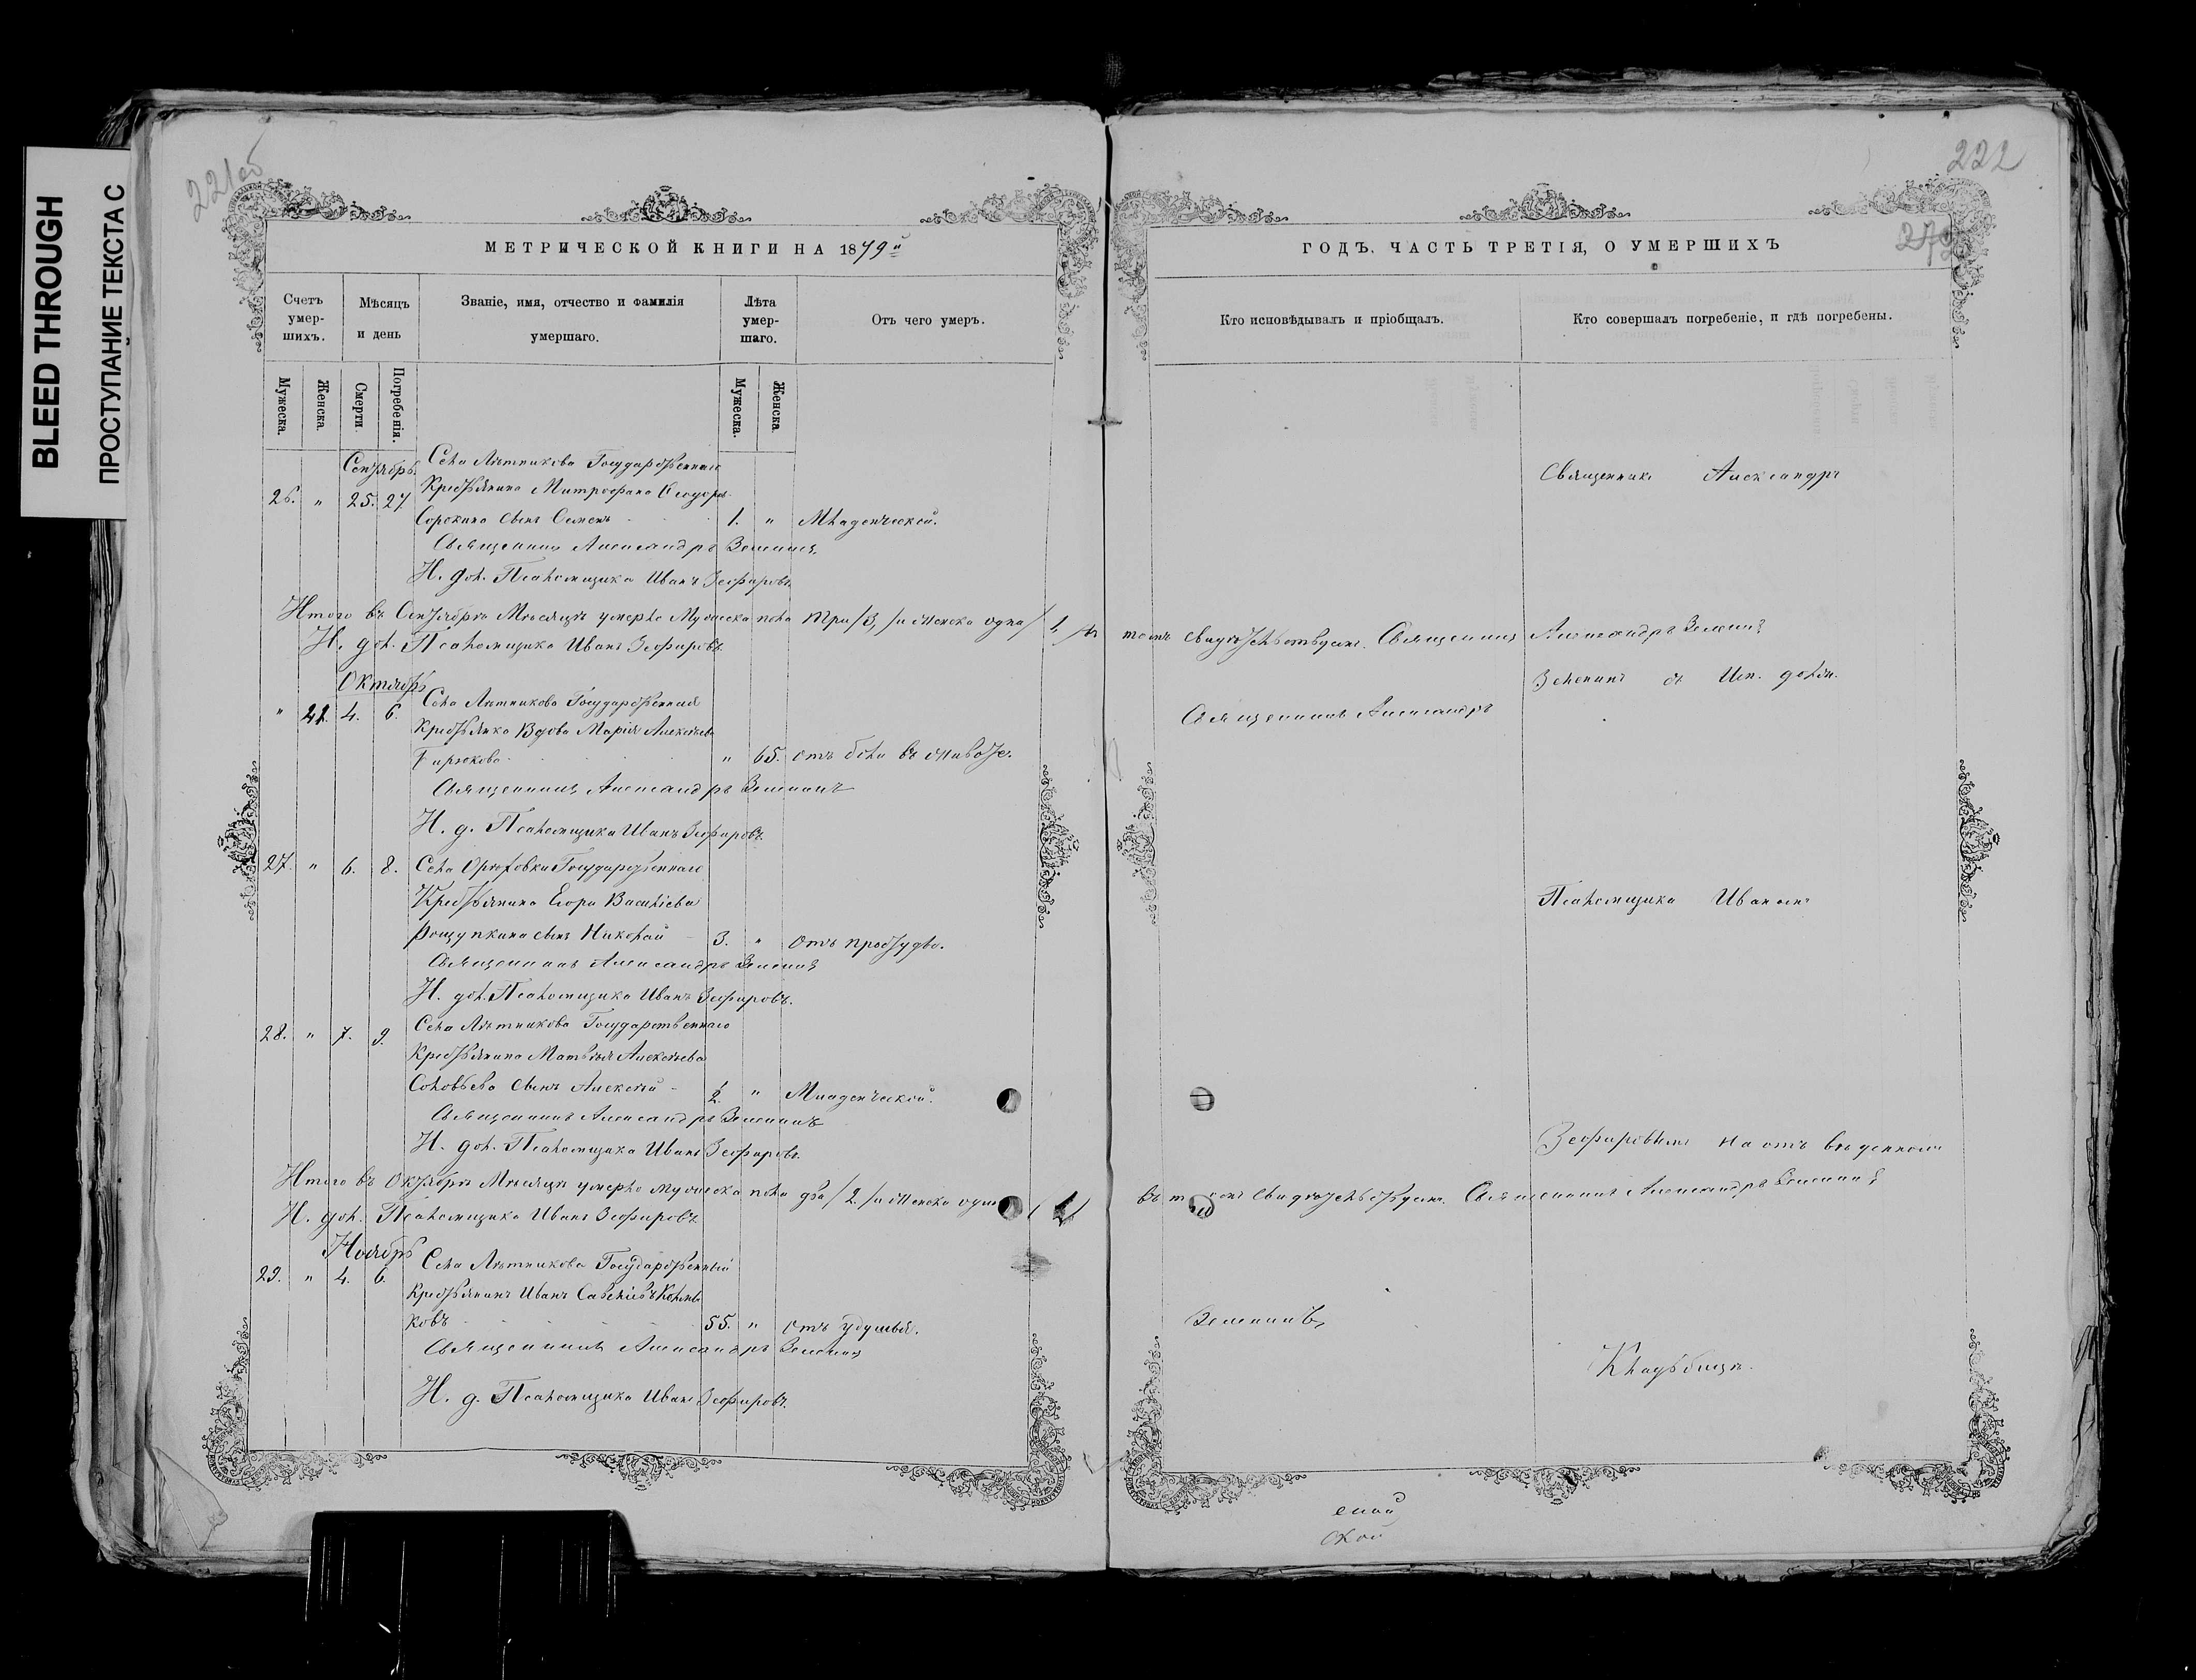 BLEED THROUGH
ПРОСТУПАНИЕ ТЕКСТА С
221об
МЕТРИЧЕСКОЙ КНИГИ НА 1879й
Счетъ умер-шихъ.
Мѣсяцъ и день
Званіе, имя, отчество и фамилія умершаго.
Лѣта умер-шаго.
Отъ чего умеръ.
Мужеска.
Женска.
Смерти.
Погребенія.
Мужеска.
Женска.
Сентябрь. Села Лѣтникова Государственнаго
26. " 25. 27 Крестьянина Митрофана Ѳеодора
Сорокина сынъ Симеонъ 1. " Младенческой.
Священникъ Александръ Зеленинъ
И. дол. Псаломщика Иванъ Зефировъ
Итого въ Сентябрѣ Мѣсяцѣ умерло Мужеска пола три /3, /и женска одна / 1, /въ
И. дол. Псаломщика Иванъ Зефировъ
Октябрь
Села Лѣтникова Государственная
" 21. 4. 6. Крестьянка Вдова Марія Алексѣева
Бирюкова " 65. отъ боли въ животе.
Священникъ Александръ Зеленинъ
И. д. Псаломщика Иванъ Зефировъ
27. " 6. 8. Села Государственнаго
Крестьянина Егора Василіева
Рощупкина сынъ Николай 3. " Отъ простуды.
Священникъ Александръ Зеленинъ
И. дол. Псаломщика Иванъ Зефировъ.
28. " 7. 9. Села Лѣтникова Государственнаго
Крестьянина Матвѣя Алексѣева
Соловьева сынъ Алексѣй " Младенческой.
Священникъ Александръ Зеленинъ
И. дол. Псаломщика Иванъ Зефировъ
Итого въ Октябрѣ Мѣсяцѣ умерло мужеска пола два /2 /и женска одна / 1 /
И. дол. Псаломщика Иванъ Зефировъ
Ноябрь
29. " 4. 6. Села Лѣтникова Государственный
Крестьянинъ Иванъ Савеліевъ
ковъ 55. " Отъ удушья.
Священникъ Александръ Зеленинъ
И. д. Псаломщика Иванъ Зефировъ.
222
279
ГОДЪ. ЧАСТЬ ТРЕТІЯ, О УМЕРШИХЪ
Кто исповѣдывалъ и пріобщалъ.
Кто совершалъ погребеніе, и гдѣ погребены.
Священникъ Александръ
томъ свидѣтельствуемъ. Священникъ Александръ Зеленинъ
Зеленинъ съ Исп. должн.
Священникъ Александръ
Псаломщика Иваномъ
Зефировымъ на отъ веденномъ
въ томъ свидѣтельствуемъ. Священникъ Александръ Зеленинъ
Зеленинъ
Кладбищѣ.